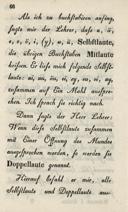 66
Als ich zu buchstabiren anfing,
sagte mir der Lehrer, daß a, ä,
e, i, (y), o, ü, Selbstlaute,
die übrigen Buchstaben Mitlaute
heißen. Er ließ mich folgende Selbst-
laute: ai, au,
zusammen auf Ein Mahl ausspre-
chen. Ich sprach sie richtig nach.
Dann sagte der Herr Lehrer:
Wenn diese Selbstlaute zusammen
mit Einer Öffnung des Mundes
ausgesprochen werden, so werden sie
Doppellaute genannt.
Hierauf befahl er mir, alle
Selbstlaute und Doppellaute aus-